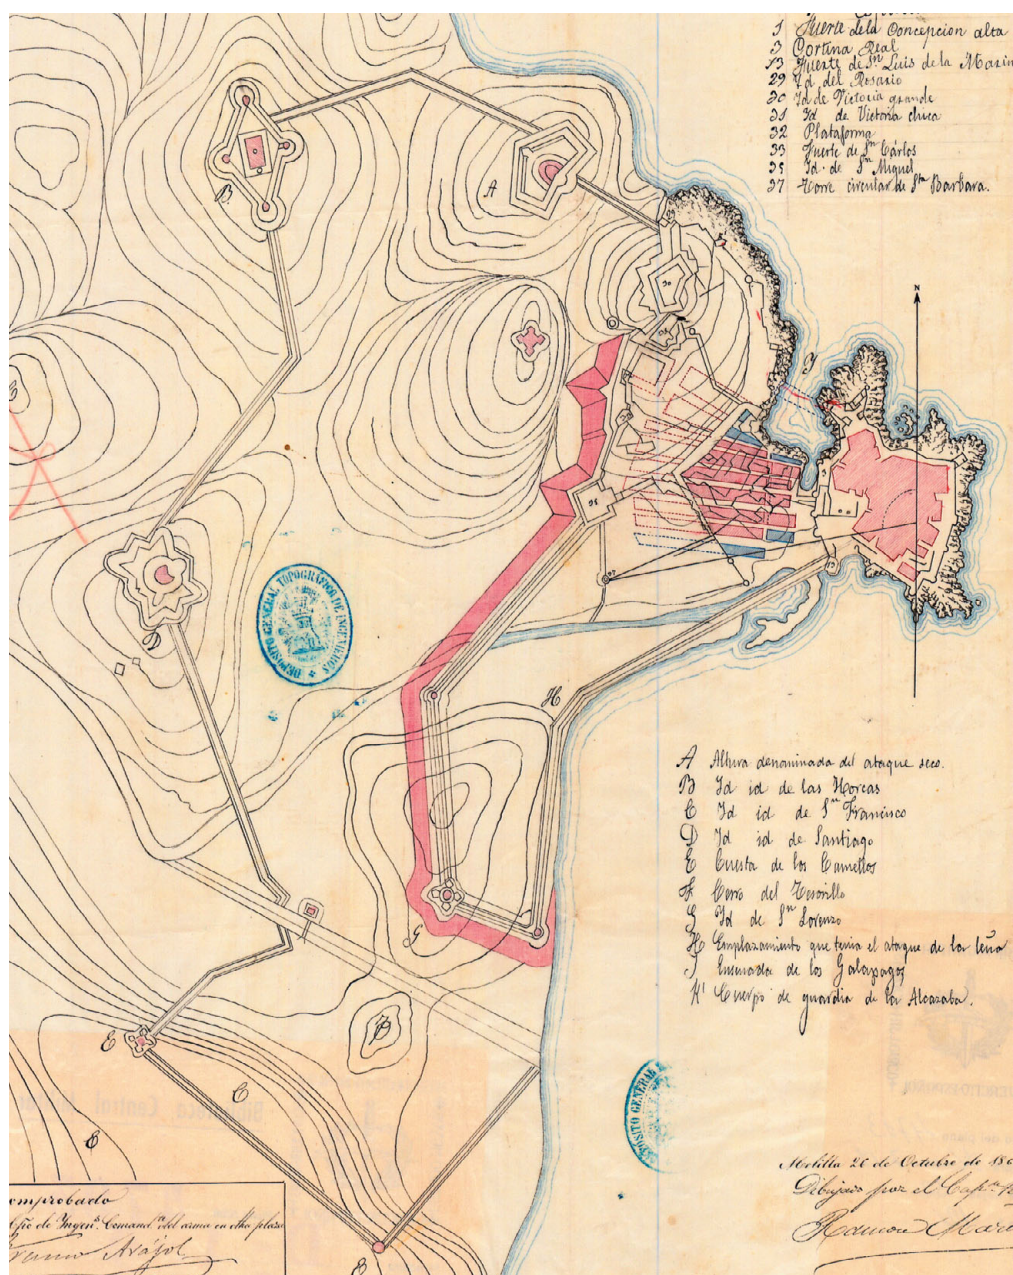 1 Fuerte dela Concepcion alta
3 Cortina Real
13 Fuerte de Sn Luis de la Marin
29 Id del Rosario
30 Id de Victoria grande
31 Id de Victoria chica
32 Plataforma
33 Fuerte de Sn Carlos
35 Id. de Sn Miguel
37 Torre circular de Sta Barbara.
N
B
A
J
D
H
G
E
C
DEPOSITO GENERAL TOPOGRAFICO DE INGENIEROS
A Altura denominada del ataque seco.
B Id id de las Horcas
C Id id de Sn Francisco
D Id id de Santiago
E Cuesta de los Camellos
F Cerro del Tesorillo
G Id de Sn Lorenzo
H Emplazamiento que tenia el ataque de la leña
J Ensenada de los Galapagos
K' Cuerpo de guardia de la Alcazaba.
DEPOSITO GENERAL
Melilla 26 de Octubre de 18
Dibujado por el Capn
Ramon
omprobado
del arma en dha plaza